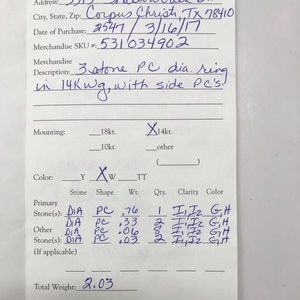 Address:
City, State, Zip: Corpus Christi, Tx 78410
Date of Purchase: 2547 / 3/16/17
Merchandise SKU #: 531034902
Merchandise
Description: 3 stone PC dia. ring
in 14Kwg, with side PC's
Mounting: __18kt. X 14kt.
__10kt. __other
(________)
Color: __Y X W __TT
Stone Shape Wt. Qty. Clarity Color
Primary
Stone(s): DIA PC .76 1 I1,I2 G,H
DIA PC .33 2 I1,I2 G,H
Other DIA PC .06 2 I1,I2 G,H
Stone(s): DIA PC .03 2 I1,I2 G,H
(If applicable)
Total Weight: 2.03